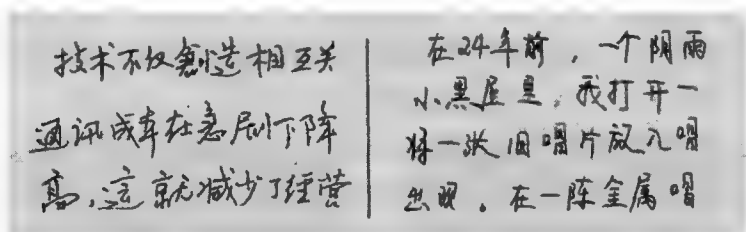 技术不仅创造相互关
通讯成本在急剧下降
高,这就减少了经营
在24年前,一个阴雨
小黑屋里,我打开一
将一张旧唱片放入唱
出现。在一阵金属唱